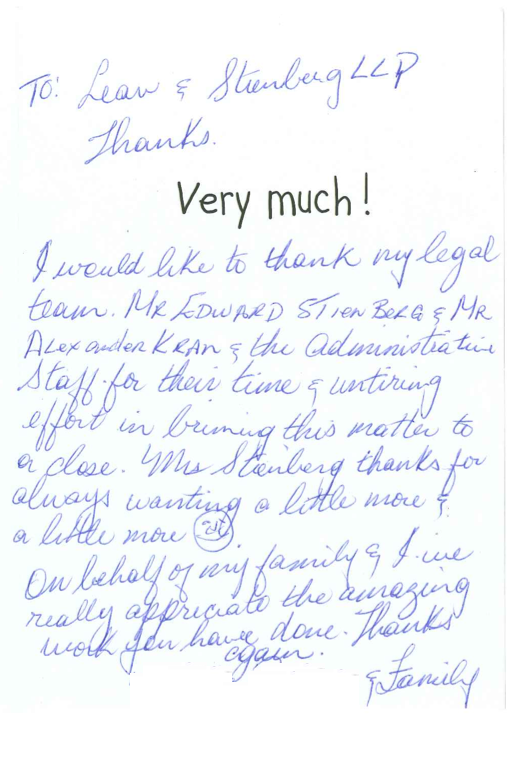 TO: Leav & Stienberg LLP
Thanks.
Very much!
I would like to thank my legal
team. MR EDWARD STienBeRG & MR
ALexanderKRAN & the administrative
Staff for their time & untiring
effort in brining this matter to
a close. Mrs Stainberg thanks for
always wanting a little more &
a little more
On behalf of my family & I we
really appriciate the amazing
work you have done. Thanks
again.
& Family